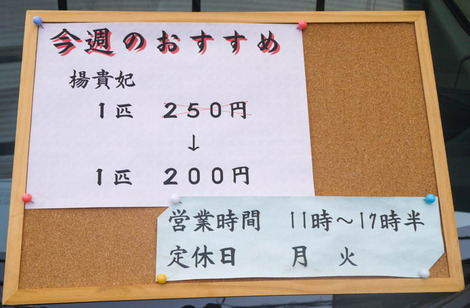 今週のおすすめ
楊貴妃
1匹 250円
↓
1匹 200円
営業時間 11時～17時半
定休日 月 火